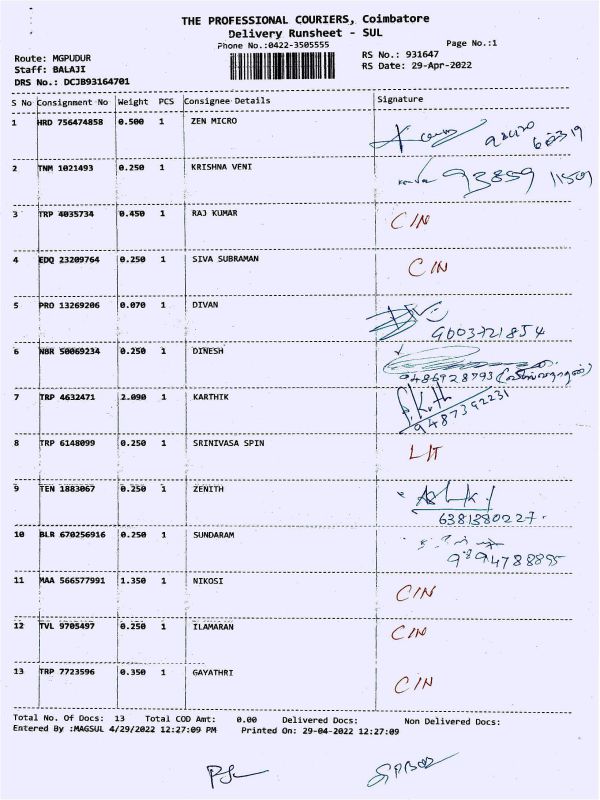 THE PROFESSIONAL COURIERS, Coimbatore
Delivery Runsheet - SUL
Phone No.:0422-3505555
Page No.:1
Route: MGPUDUR
RS No.: 931647
Staff: BALAJI
RS Date: 29-Apr-2022
DRS No.: DCJB93164701
S No Consignment No Weight PCS Consignee Details Signature
1 HRD 756474858 0.500 1 ZEN MICRO
2 TNM 1021493 0.250 1 KRISHNA VENI 93859 11501
3 TRP 4035734 0.450 1 RAJ KUMAR C/N
4 EDQ 23209764 0.250 1 SIVA SUBRAMAN C/N
5 PRO 13269206 0.070 1 DIVAN
9003721854
6 NBR 50069234 0.250 1 DINESH
9486928793
7 TRP 4632471 2.090 1 KARTHIK
9487392231
8 TRP 6148099 0.250 1 SRINIVASA SPIN L/T
9 TEN 1883067 0.250 1 ZENITH
6381380227.
10 BLR 670256916 0.250 1 SUNDARAM
9894788895
11 MAA 566577991 1.350 1 NIKOSI C/N
12 TVL 9705497 0.250 1 ILAMARAN C/N
13 TRP 7723596 0.350 1 GAYATHRI C/N
Total No. Of Docs: 13 Total COD Amt: 0.00 Delivered Docs: Non Delivered Docs:
Entered By :MAGSUL 4/29/2022 12:27:09 PM Printed On: 29-04-2022 12:27:09